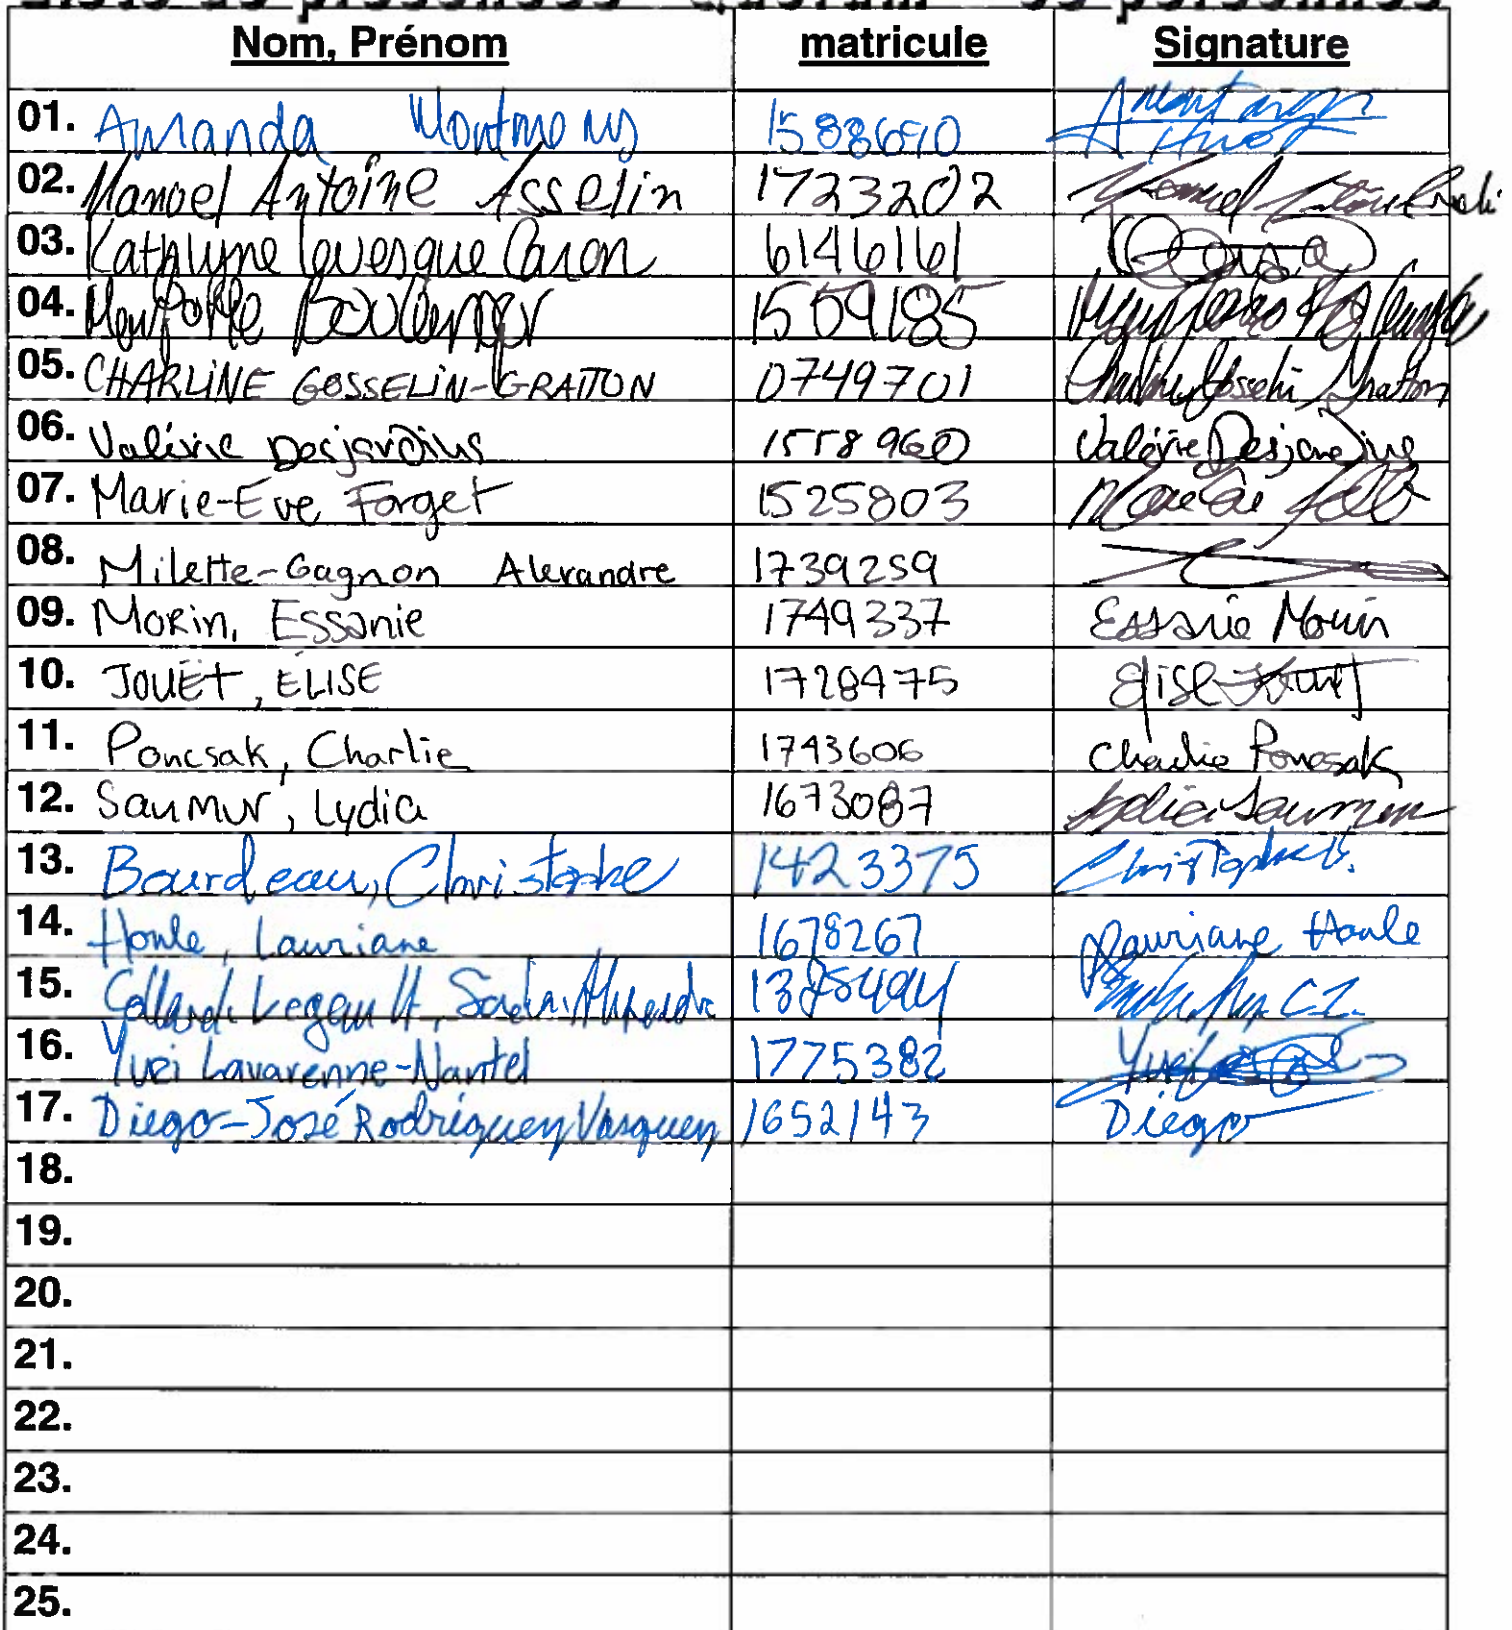 Nom, Prénom matricule Signature
01. Amanda 1588690
02. Manoel Antoine Asselin 1723202
03. Kathlyne Levesque Caron 6146161
04. Boulenger 1509185
05. CHARLINE GOSSELIN-GRATTON 0749701
06. Valérie Desjardins 1558960 Valérie Desjardins
07. Marie-Eve Forget 1525803
08. Milette-Gagnon Alexandre 1739259
09. Morin, Essanie 1749337 Essanie Morin
10. JOUËT, ELISE 1728475 Elise Jouët
11. Poncsak, Charlie 1743606 Charlie Poncsak
12. Saumur, Lydia 1673087 Lydia Saumur
13. Bourdeau, Christophe 1423375 Christophe B.
14. Houle, Lauriane 1678267 Lauriane Houle
15. Collard-Legault,
16. Yuri Lavarenne-Nantel 1775382 Yuri
17. Diego-José Rodríguez Vasquez 1652143 Diego
18.
19.
20.
21.
22.
23.
24.
25.